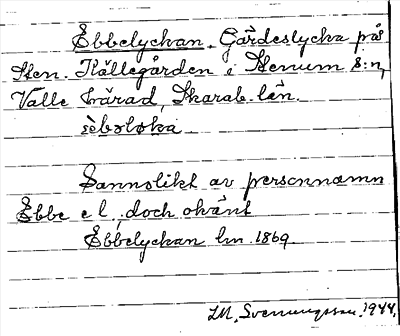 Ebbelyckan. Gärdeslycka på
Hem. Källegården i Stenum s:n,
Valle härad, Skarab. län.
sèbəløka
Sannolikt av personnamn
Ebbe el., doch okänt
Ebbelyckan lm. 1869.
I.M. Svenungsson. 1944.